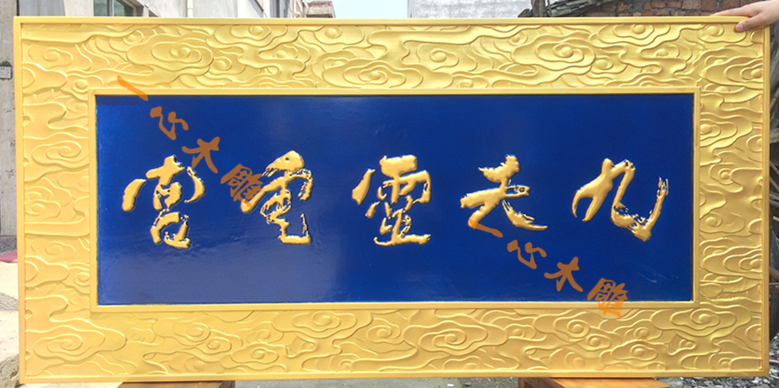 九天靈宮
一心木雕
一心木雕